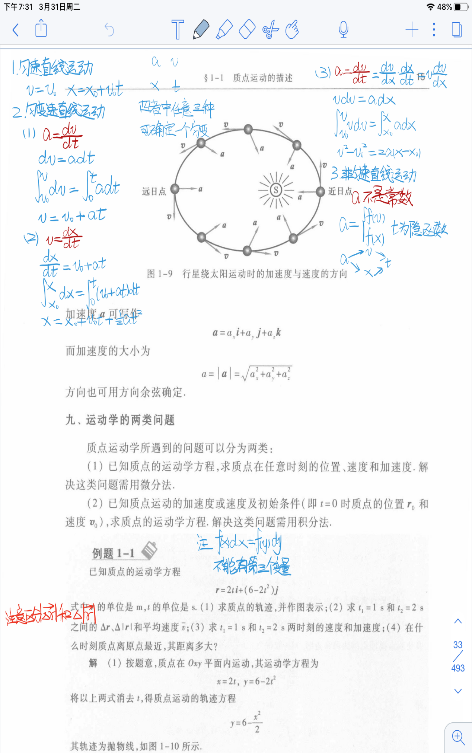 下午7:31 3月31日周二
48%
§1-1 质点运动的描述
1.匀速直线运动
v=v₀ x=x₀+v₀t
2.匀变速直线运动
(1) a=dv/dt
dv=adt
∫dv=∫adt
v=v₀+at
(2) v=dx/dt
dx/dt=v₀+at
∫dx=∫(v₀+at)dt
a v
x t
(3) a=dv/dt=dv/dx dx/dt=v dv/dx
vdv=adx
∫vdv=∫adx
v²-v₀²=2a(x-x₀)
a不是常数
远日点
近日点
S
v
a
图 1-9 行星绕太阳运动时的加速度与速度的方向
a=aₓi+aᵧj+a_zk
而加速度的大小为
a=|a|=√(aₓ²+aᵧ²+a_z²)
方向也可用方向余弦确定.
九、运动学的两类问题
质点运动学所遇到的问题可以分为两类:
(1) 已知质点的运动学方程,求质点在任意时刻的位置、速度和加速度. 解
决这类问题需用微分法.
(2) 已知质点运动的加速度或速度及初始条件(即 t=0 时质点的位置 r₀ 和
速度 v₀),求质点的运动学方程. 解决这类问题需用积分法.
注 f(x)dx=f(y)dy
不能有第三个变量
例题 1-1
已知质点的运动学方程
r=2ti+(6-2t²)j
式中r的单位是 m,t 的单位是 s. (1) 求质点的轨迹,并作图表示;(2) 求 t₁=1 s 和 t₂=2 s
之间的 Δr,Δ|r|和平均速度 v̄;(3) 求 t₁=1 s 和 t₂=2 s 两时刻的速度和加速度;(4) 在什
么时刻质点离原点最近,其距离多大?
解 (1) 按题意,质点在 Oxy 平面内运动,其运动学方程为
x=2t, y=6-2t²
将以上两式消去 t,得质点运动的轨迹方程
y=6-x²/2
其轨迹为抛物线,如图 1-10 所示.
33
493